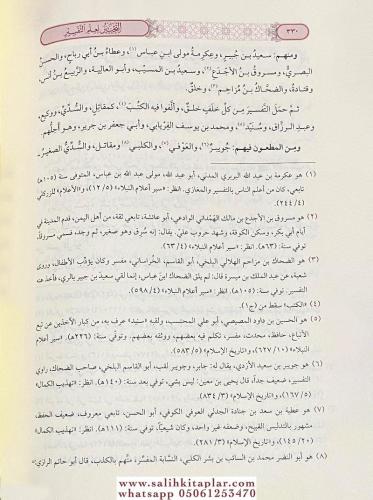 ٣٣٠
التحبير في علم التفسير
ومنهم: سعيدُ بنُ جُبيرٍ، وعِكرِمةُ مولى ابنِ عباس(١)، وعطاءُ بنُ أبي رباحٍ، والحسنُ
البصريُّ، ومسروقُ بنُ الأجدَعِ(٢)، وسعيدُ بنُ المسيّب، وأبو العالية، والرَّبيعُ بنُ أنسٍ
وقتادةُ، والضحّاكُ بنُ مُزاحِمٍ(٣)، وخلقٌ.
ثم حَمَلَ التفسيرَ مِن كلِّ خلَفٍ خلقٌ، وألَّفوا فيه الكتُبَ(٤)؛ كمقاتلٍ، والسُّدِّيِّ، ووكيعٍ
وعبدِ الرزّاق، وسُنَيْدٍ(٥)، ومحمد بن يوسف الفِريابي، وأبي جعفر بن جرير، وهو أجلُّهم.
ومن المطعونِ فيهم: جُويبرٌ(٦)، والعَوْفيُّ(٧)، والكلبيُّ(٨)، ومقاتلٌ، والسُّدِّيُّ الصغيرُ،
(١) هو عكرمة بن عبد الله البربري المدني، أبو عبد الله، مولى عبد الله بن عباس، المتوفى سنة (١٠٥هـ)
تابعي، كان من أعلم الناس بالتفسير والمغازي. انظر: «سير أعلام النبلاء» (٥/ ١٢)، و«الأعلام» للزركلي
(٤/ ٢٤٤).
(٢) هو مسروق بن الأجدع بن مالك الهَمْداني الوادعي، أبو عائشة، تابعي ثقة، من أهل اليمن، قدم المدينة في
أيام أبي بكر، وسكن الكوفة، وشهد حروب علي. يقال: إنه سُرق وهو صغير، ثم وجد، فسمي مسروقًا.
توفي سنة: (٦٣هـ). انظر: «سير أعلام النبلاء» (٤/ ٦٣).
(٣) هو الضحاك بن مزاحم الهلالي البلخي، أبو القاسم، الخراساني، مفسر وكان يؤدِّب الأطفال، وروى
شعبة، عن عبد الملك بن ميسرة قال: لم يلق الضحاك ابن عباس، إنما لقي سعيد بن جبير بالري، فأخذ عنه
توفي سنة: (١٠٥هـ). انظر: «سير أعلام النبلاء» (٤/ ٥٩٨).
(٤) «الكتب» سقط من (ج١).
(٥) هو الحسين بن داود المصيصي، أبو علي المحتسب، ولقبه «سنيد» عرف به، من كبار الآخذين عن تبع
الأتباع، حافظ، محدث، مفسر، تكلم فيه بعضهم، ووثقه بعضهم. وتوفي سنة: (٢٢٦هـ). «سير أعلام
النبلاء» (١٠/ ٦٢٧)، و«تاريخ الإسلام» (٥/ ٥٨٣).
(٦) هو جويبر بن سعيد الأزدي، يقال له: جابر، وجويبر لقب، أبو القاسم البلخي، صاحب الضحاك، راوي
التفسير، ضعيف جداً، قال يحيى بن معين: ليس بشي، توفي بعد سنة: (١٤٠هـ). انظر: «تهذيب الكمال»
(٥/ ١٦٧)، و«تاريخ الإسلام» (٣/ ٨٣٤).
(٧) هو عطية بن سعد بن جنادة الجدلي العوفي الكوفي، أبو الحسن، تابعي معروف، ضعيف الحفظ،
مشهور بالتدليس القبيح، وضعفه غير واحد، وكان شيعيًّا. توفي سنة: (١١١هـ). انظر: «تهذيب الكمال»
(٢٠/ ١٤٥)، و«تاريخ الإسلام» (٣/ ٢٨١).
(٨) هو أبو النضر محمد بن السائب بن بشر الكلبي، النسّابة المفسِّر، متَّهم بالكذب، قال أبو حاتم الرازي:
www.salihkitaplar.com
whatsapp 05061253470